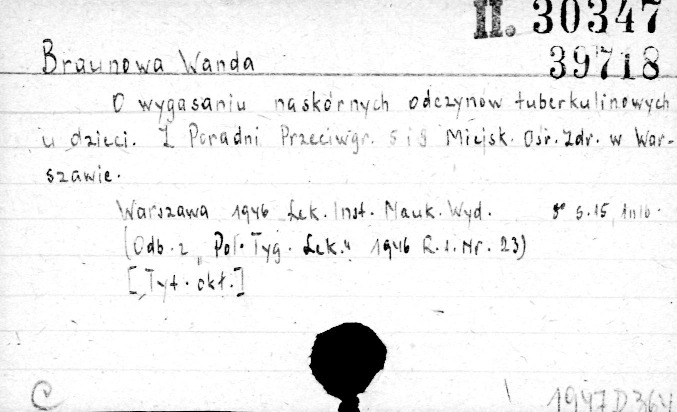 II. 30347
39718
Braunowa Wanda
O wygasaniu naskórnych odczynów tuberkulinowych
u dzieci. Z Poradni Przeciwgr. 5 i 8 Miejsk. Ośr. Zdr. w War-
szawie.
Warszawa 1946 Lek. Inst. Nauk. Wyd. 8° s. 15, 1nlb.
(Odb. z „Pol. Tyg. Lek." 1946 R. 1. Nr. 23)
[Tyt. okł.]
C 1947 D 364